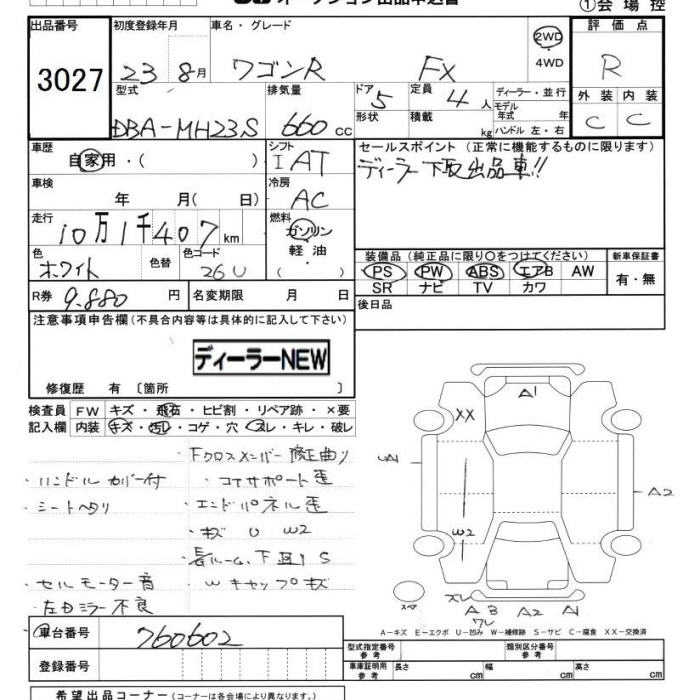 オークション出品申込書
①会場控
出品番号 初度登録年月 車名・グレード 評価点
3027 23 8月 ワゴンR FX 2WD 4WD R
型式 排気量 ドア 5 定員 4人 ディーラー・並行 外装 内装
DBA-MH23S 660cc 形状 積載 kg モデル年式 年 ハンドル 左・右 C C
車歴 自家用・( ) シフト IAT セールスポイント (正常に機能するものに限ります)
ディーラー下取出品車!!
車検 年 月( 日) 冷房 AC
走行 10万1千407km 燃料 ガソリン 軽油 ( )
色 ホワイト 色替 色コード 26U
装備品 (純正品に限り○をつけてください) 新車保証書
PS PW ABS エアB AW 有・無
SR ナビ TV カワ
R券 9.880円 名変期限 月 日 後日品
注意事項申告欄(不具合内容等は具体的に記入して下さい)
ディーラーNEW
修復歴 有 〔箇所 〕
検査員 FW キズ・飛石・ヒビ割・リペア跡・×要
記入欄 内装 キズ・汚レ・コゲ・穴・スレ・キレ・破レ
Fクロスメンバー修正曲り
ハンドルカバー付 コアサポート歪
シートヘタリ エンドパネル歪
キズ U W2
長ルーム、下回りS
セルモーター音 Wキャップキズ
左Dミラー不良
A1
XX
A2
W2
スペア
ズレ A B A2 A1
ワレ
A-キズ E-エクボ U-凹み W-補修跡 S-サビ C-腐食 XX-交換済
車台番号 760602 型式指定番号 参考 類別区分番号 参考
登録番号 車庫証明用 参考 長さ cm 幅 cm 高さ cm
希望出品コーナー(コーナーは各会場により異なります。)